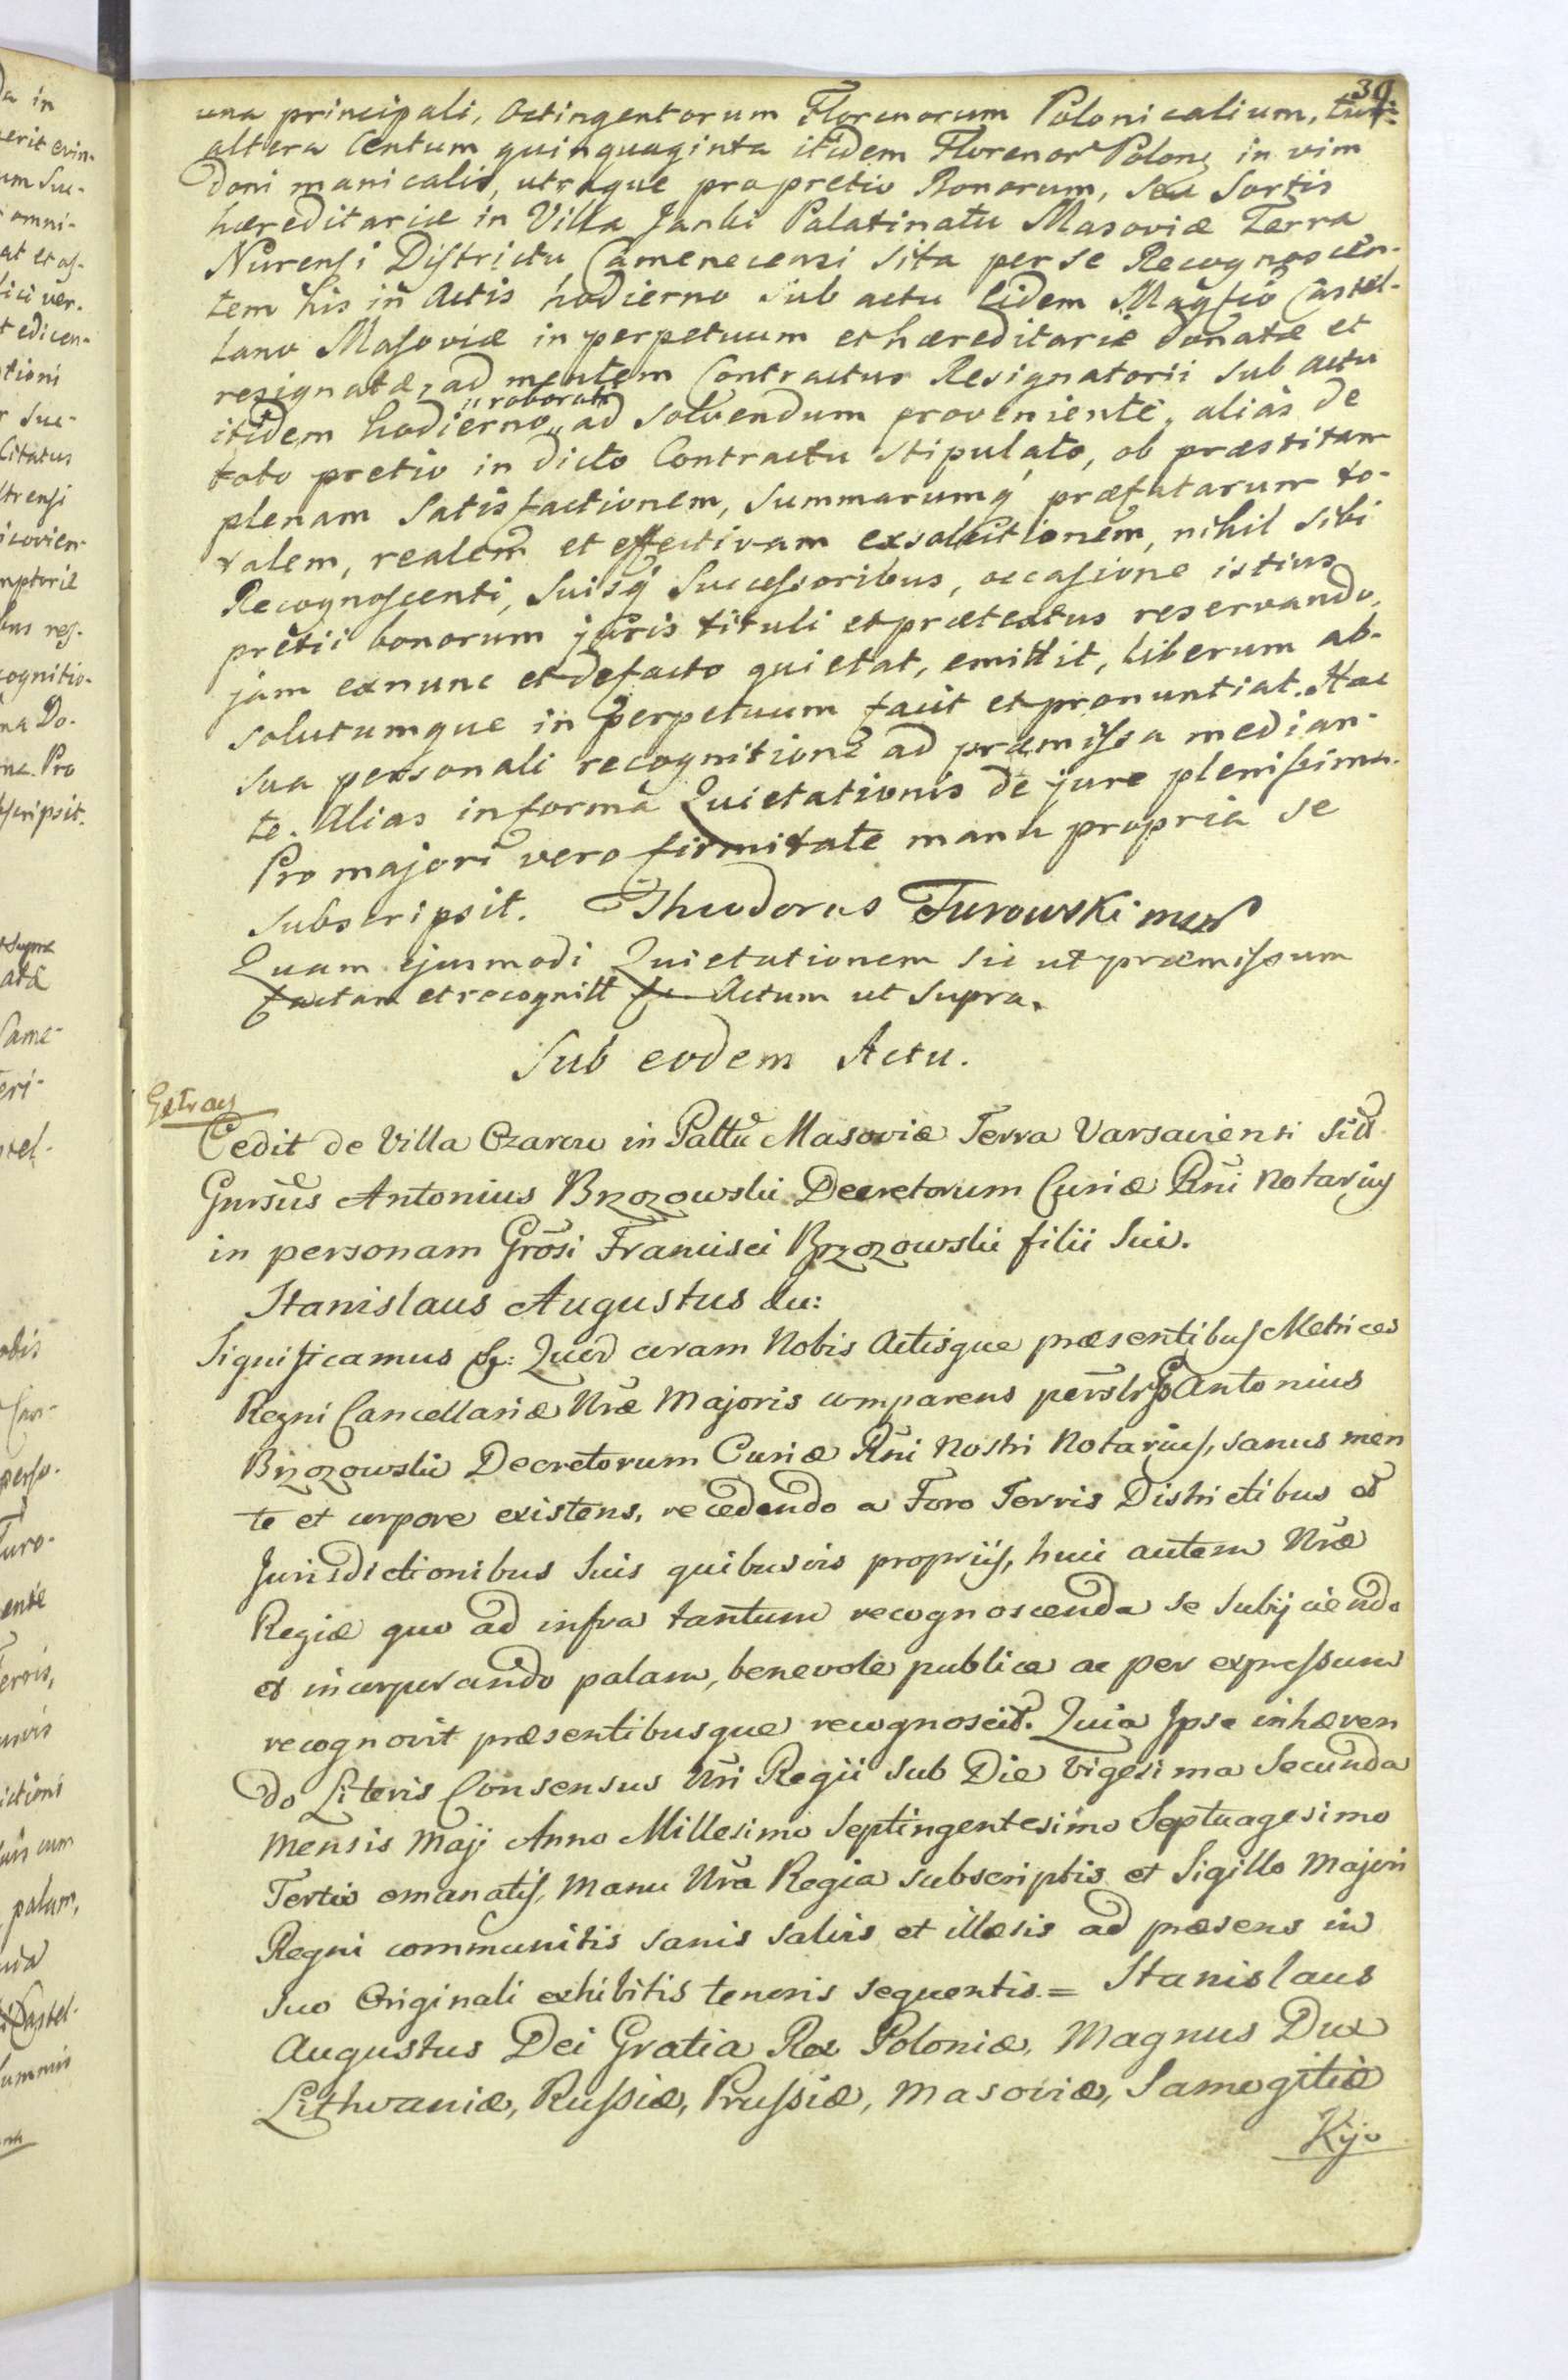 39.
una principali, Octingentorum Florenorum Polonicalium,
altera Centum quinquaginta itidem Florenor Polon in vim
doni manicalis, utraque pro pretio Bonorum, seu Sortis
hæreditariæ in Villa Janki Palatinatu Masoviæ Terra
Nurensi Districtu Camenecensi sita per se Recognoscen-
tem his in Actis hodierno sub actu Eidem Magfco Castel-
lano Masoviæ in perpetuum et hæreditarie donatæ et
resignatæ, ad mentem Contractus Resignatorii sub actu
itidem hodierno „roborati„ ad solvendum proveniente, alias de
toto pretio in dicto Contractu stipulato, ob præstitam
plenam satisfactionem, summarumq præfatarum to-
talem, realem et effectivam exsolutionem, nihil sibi
Recognoscenti, suisq Successoribus, occasione istius
prætii bonorum juris tituli et prætextus reservando,
jam exnunc et defacto quietat, emittit, liberum ab-
solutumque in perpetuum facit et pronuntiat. Hac
sua personali recognitione ad præmissa median-
te. Alias in forma Quietationis de jure plenissima.
Pro majori vero firmitate manu propria se
subscripsit. Theodorus Turowski mpp
Quam ejusmodi Quietationem sic ut præmissum
factam et recognitt Actum ut supra.
Sub eodem Actu.
Extrad
Cedit de Villa Ozarow in Palttu Masoviæ Terra Varsaviensi sitt
Gnrsus Antonius Brzozowski Decretorum Curiæ Rni Notarius
in personam Grosi Francisci Brzozowski filii sui.
Stanislaus Augustus &c:
Significamus &: Quod coram Nobis Actisque præsentibus Metrices
Regni Cancellariæ Nræ Majoris comparens perslris Antonius
Brzozowski Decretorum Curiæ Rni Nostri Notarius, sanus men
te et corpore existens, recedendo a Foro Terris Districtibus et
Jurisdictionibus suis quibusvis propriis, huic autem Nræ
Regiæ quo ad infra tantum recognoscenda se subijciendo
et incorporando palam, benevole publice ac per expressum
recognovit præsentibusque recognoscit. Quia Ipse inhæren
do Literis Consensus Nri Regii sub Die Vigesima Secunda
Mensis Maji Anno Millesimo Septingentesimo Septuagesimo
Tertio emanatis, Manu Nra Regia subscriptis et Sigillo Majori
Regni communitis sanis salvis et illæsis ad præsens in
suo Originali exhibitis tenoris sequentis = Stanislaus
Augustus Dei Gratia Rex Poloniæ, Magnus Dux
Lithvaniæ, Russiæ, Prussiæ, Masoviæ, Samogitiæ
Kijo